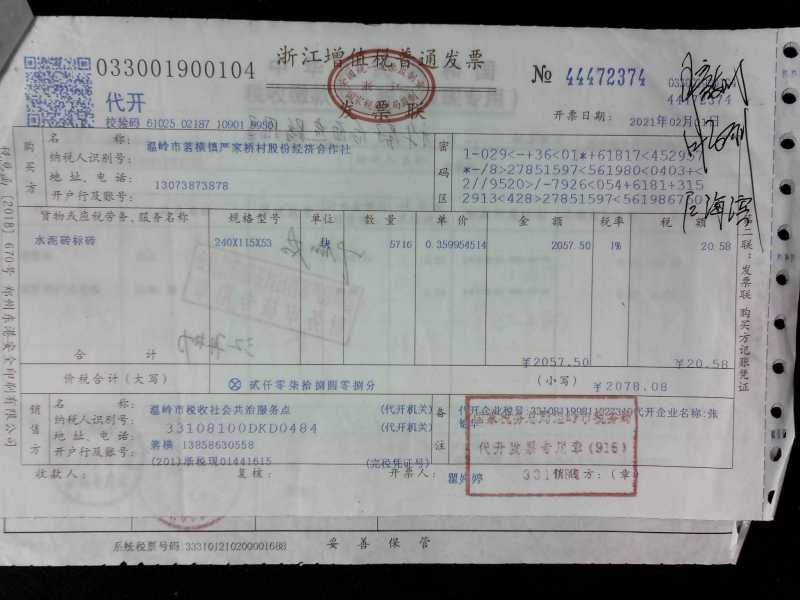 浙江增值税普通发票
033001900104
№ 44472374
代开
发票联
校验码 61025 02187 10901 99501
开票日期: 2021年02月01日
购买方
名 称: 温岭市箬横镇严家桥村股份经济合作社
纳税人识别号:
地 址、电 话: 13073873878
开户行及账号:
密码区
1-029<-+36<01*+61817<45295
*-/8>27851597<561980<0403+<
2//9520>/-7926<054+6181+315
2913<428>27851597<56198676
货物或应税劳务、服务名称 规格型号 单位 数 量 单 价 金 额 税率 税 额
水泥砖标砖 240X115X53 块 5716 0.359954514 2057.50 1% 20.58
合 计 ¥2057.50 ¥20.58
价税合计(大写) ⊗ 贰仟零柒拾捌圆零捌分 (小写) ¥2078.08
销售方
名 称: 温岭市税收社会共治服务点 (代开机关)
纳税人识别号: 33108100DKD0484 (代开机关)
地 址、电 话: 箬横 13858630558
开户行及账号: (201)浙税现01441615 (完税凭证号)
备注
代开企业税号: 代开企业名称:张
代开发票专用章(916)
收款人: 复核: 开票人: 瞿婷婷 销售方:(章)
第二联:发票联 购买方记账凭证
系统税票号码:333101210200001688 妥善保管